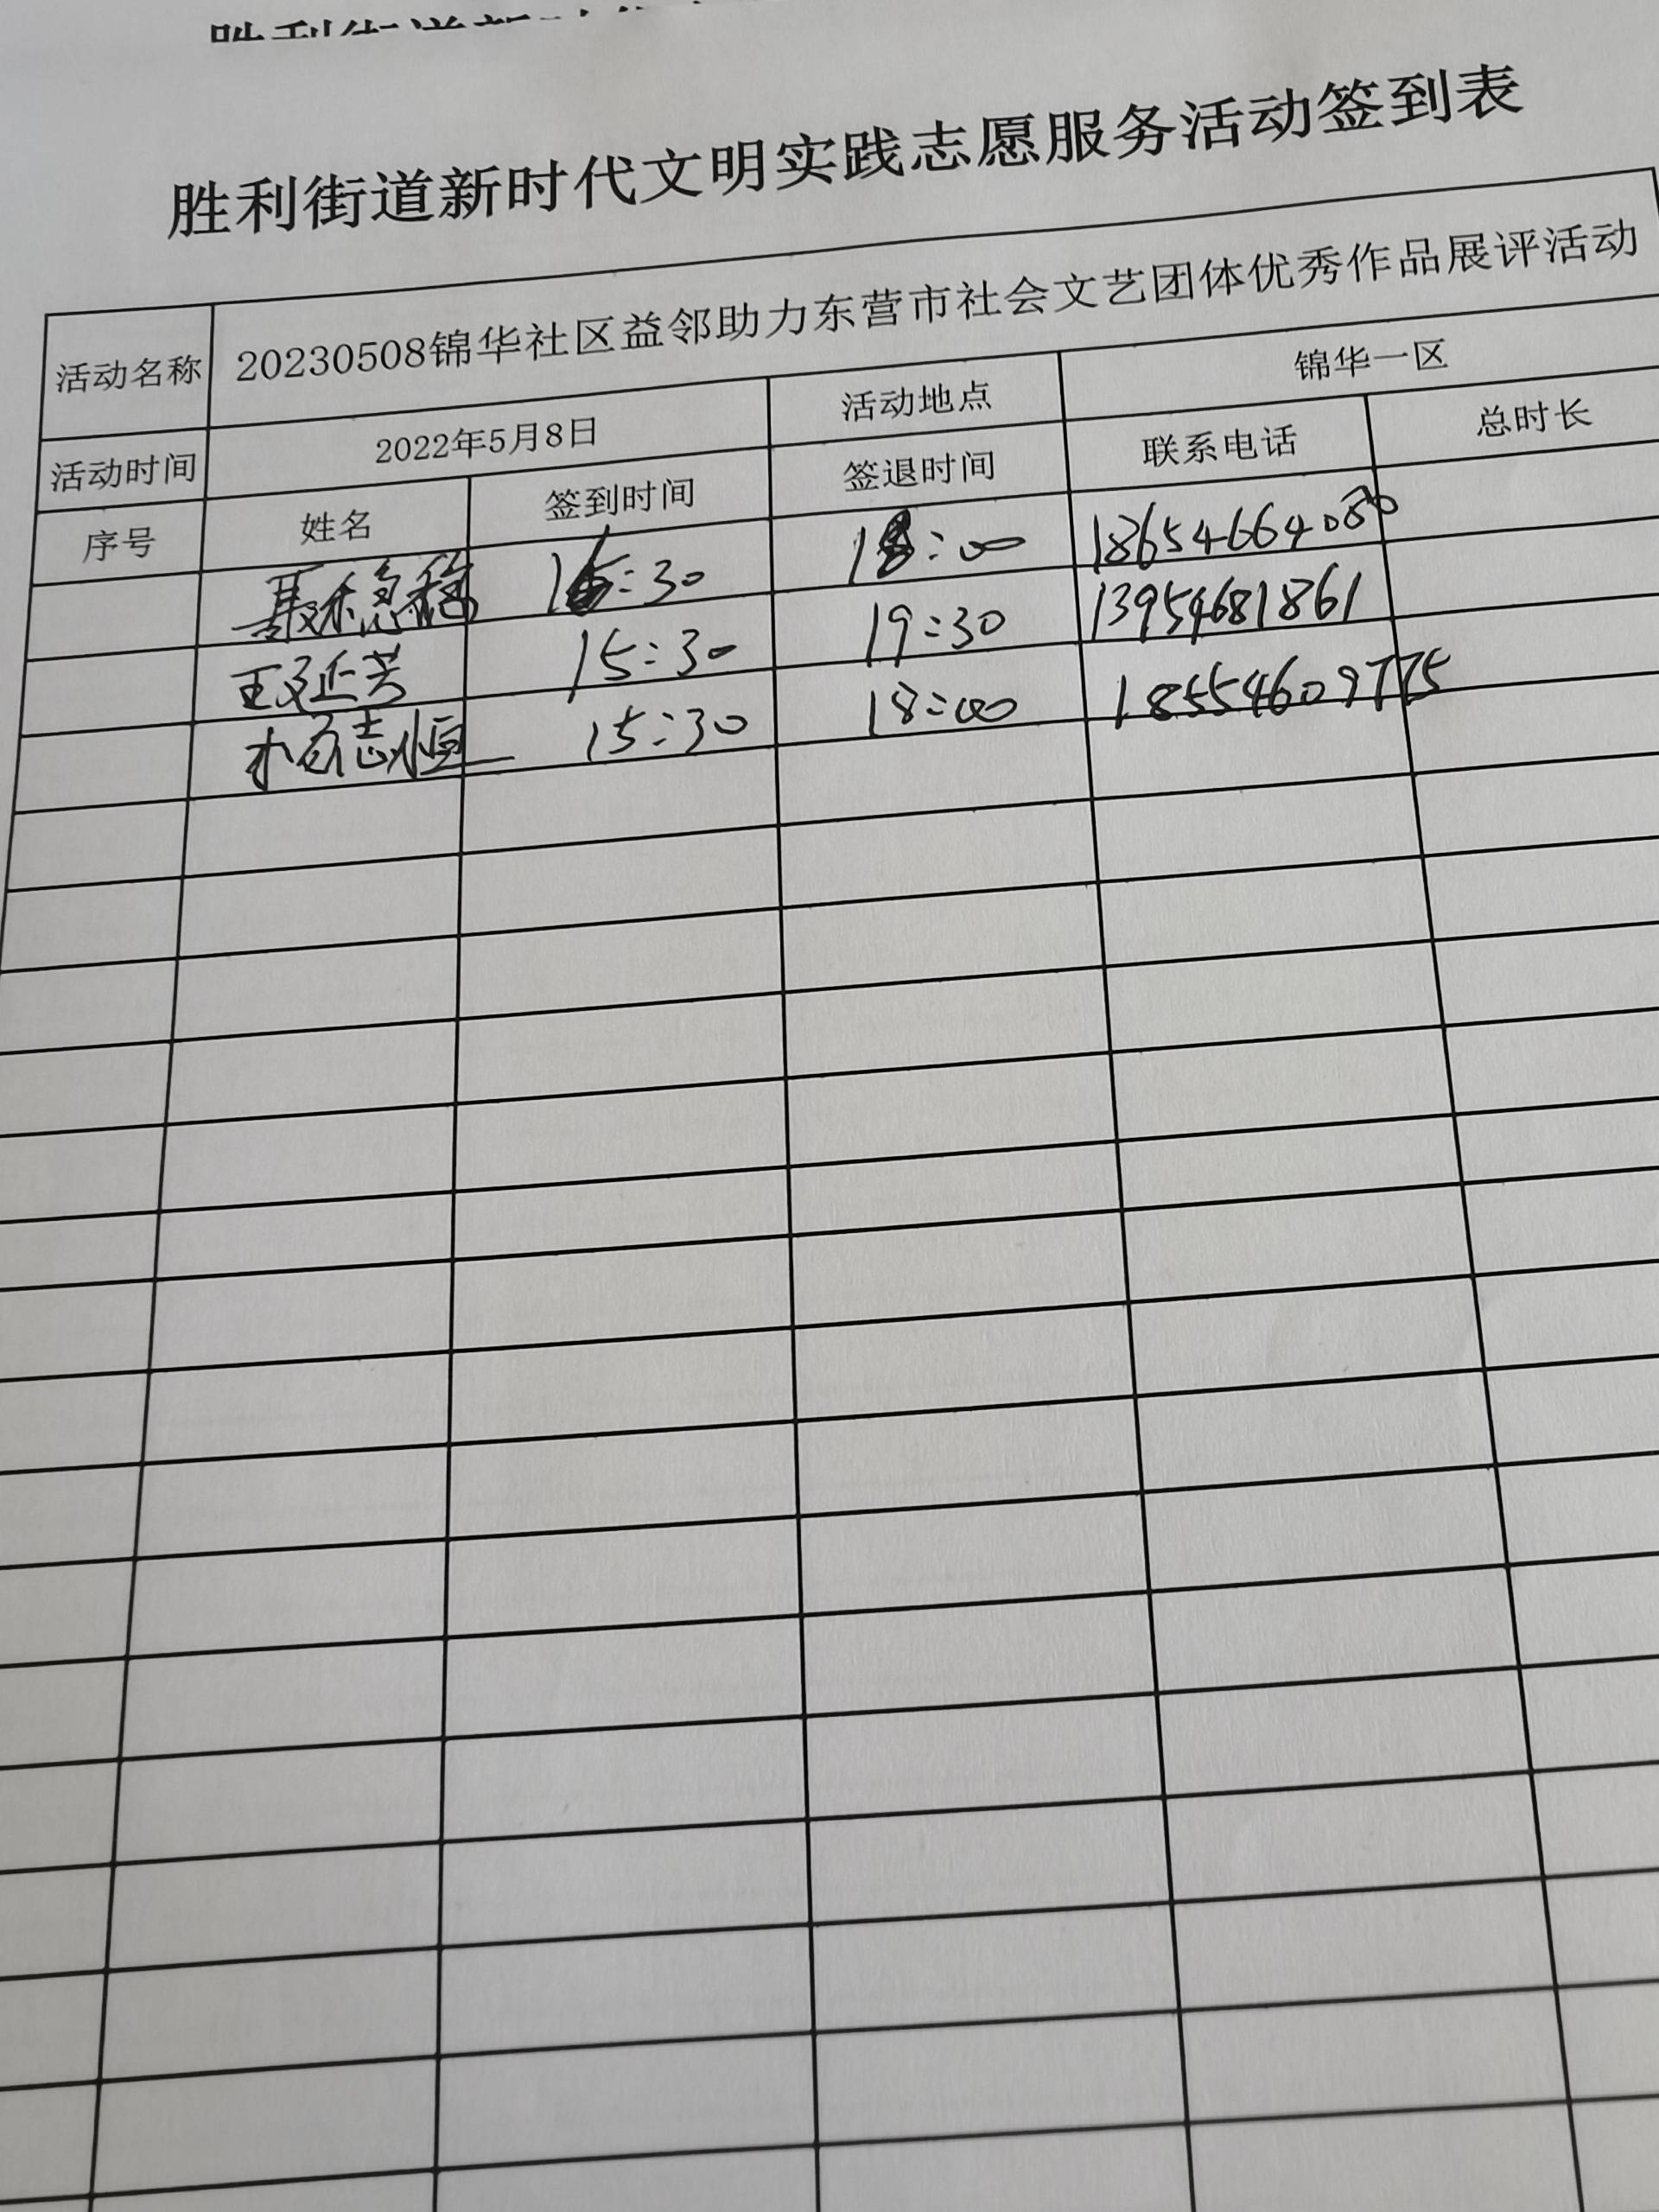 胜利街道新时代文明实践志愿服务活动签到表
活动名称 20230508锦华社区益邻助力东营市社会文艺团体优秀作品展评活动
活动时间 2022年5月8日 活动地点 锦华一区
序号 姓名 签到时间 签退时间 联系电话 总时长
:30 18:00 18654664080
王延芳 15:30 19:30 13954681861
志恒 15:30 18:00 18554609775